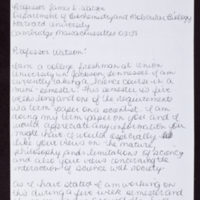 Professor James D. Watson
Department of Biochemistry and Molecular Biology
Harvard University
Cambridge Massachusetts 02138
Professor Watson:
I am a college freshman at Union
University of Jackson, Tennessee. I am
currently taking a science course in a
mini-semester. This semester is five
weeks long and one of the requirements
is a term paper on a scientist. I am
doing my term paper on you and I
would appreciate any information you
might have. I would especially
like your views on the nature,
philosophy and limitations of science
and also your views concerning the
interaction of science with society.
As I have stated I am working on
this during a five week semester and